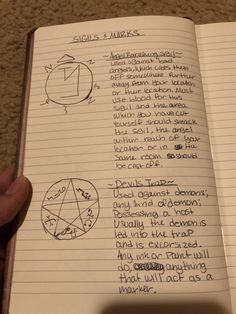 SIGILS & MARKS
~ Angel Banishing Sigil ~
Used against
angels, which casts them
off somewhere further
away from your location
or their location. Most
use blood for this
sigil and the area
which you have cut
yourself should smack
the sigil, the angel
within reach of your
location or in the
same room should
be cast off.
~ Devils Trap ~
Used against demons;
any kind of demon;
possessing a host
Usually the demon is
led into the trap
and is excorsized.
Any ink or paint will
do, anything
that will act as a
marker.